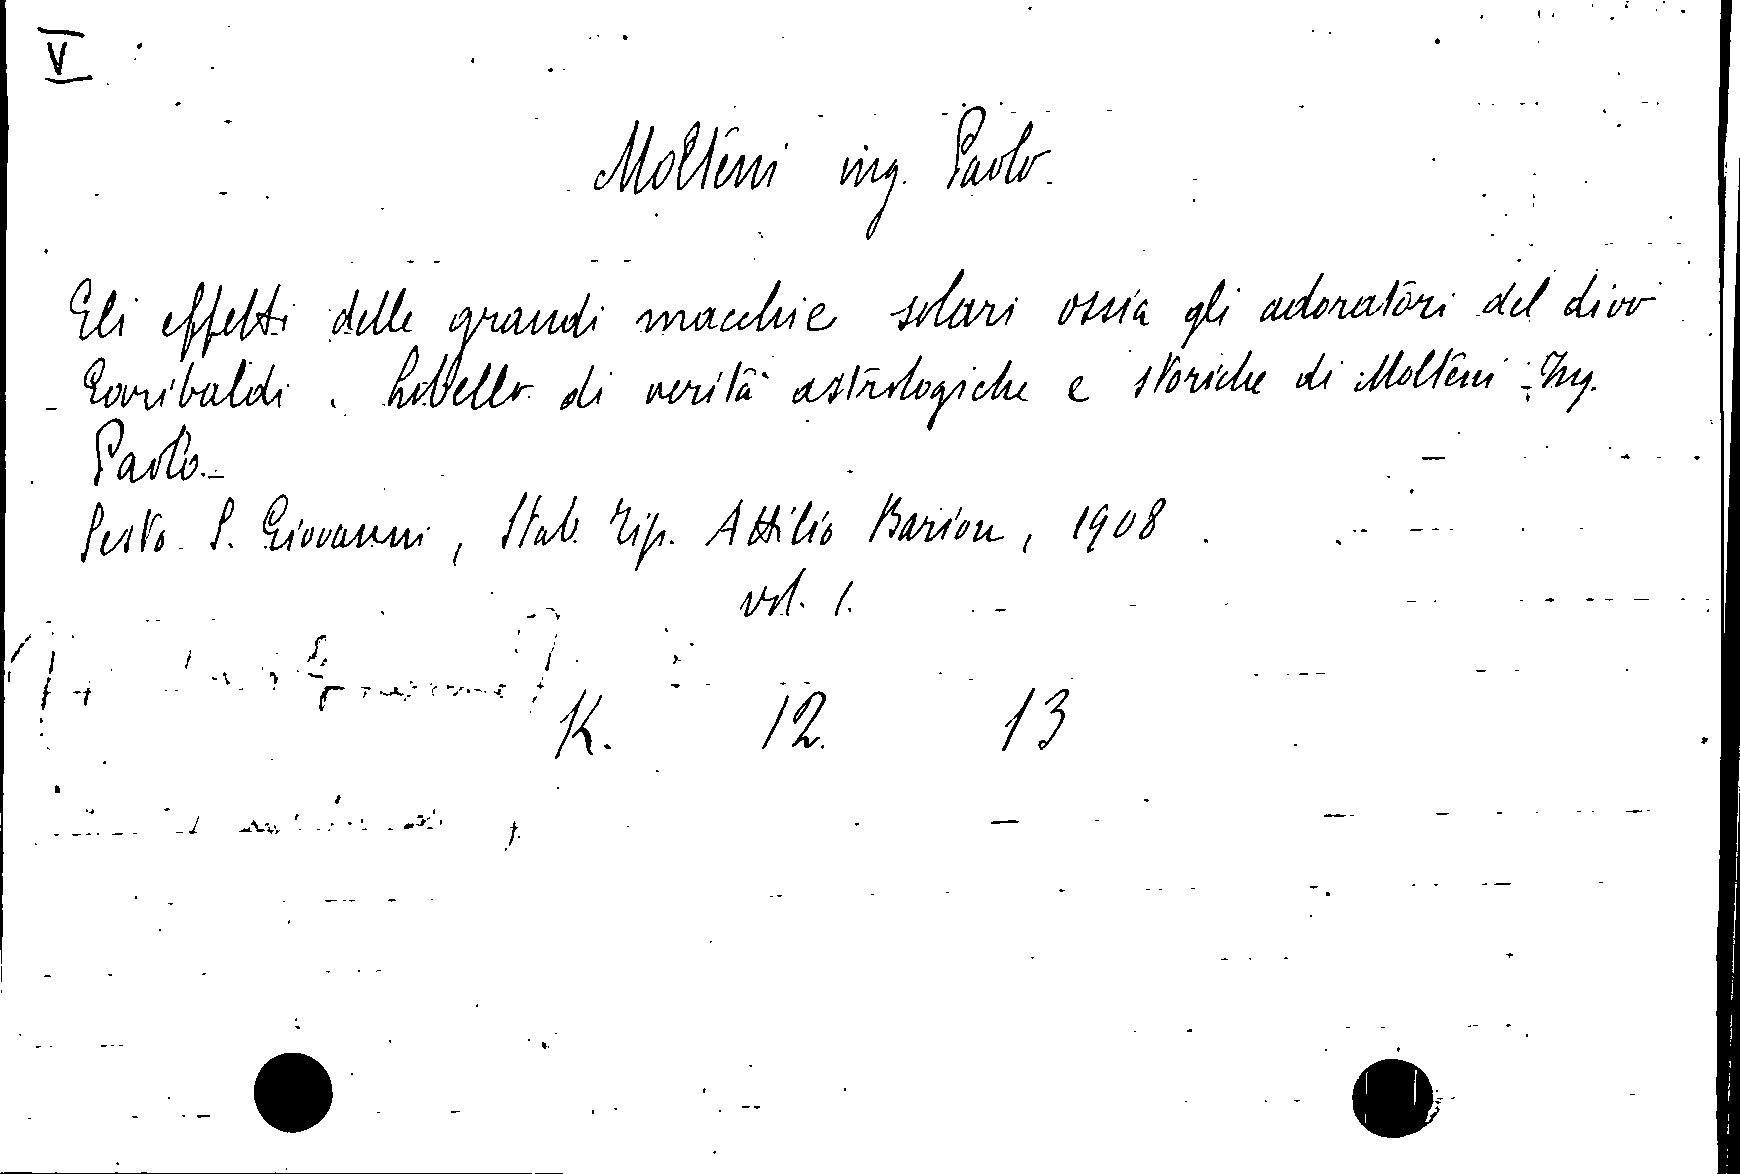 V
Molteni ing. Paolo.
Gli effetti delle grandi macchie solari ossia gli adoratori del divo
Garibaldi. Libello di verità astrologiche e storiche di Molteni Ing.
Paolo.-
Sesto S. Giovanni, Stab. Tip. Attilio Barion, 1908.
vol. 1.
K. 12. 13